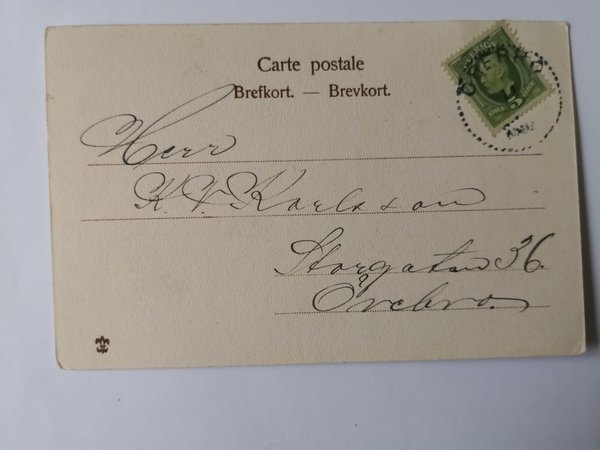 Carte postale
Brefkort. — Brevkort.
Herr
K. V. Karlsson
Storgatan 36
Örebro
5